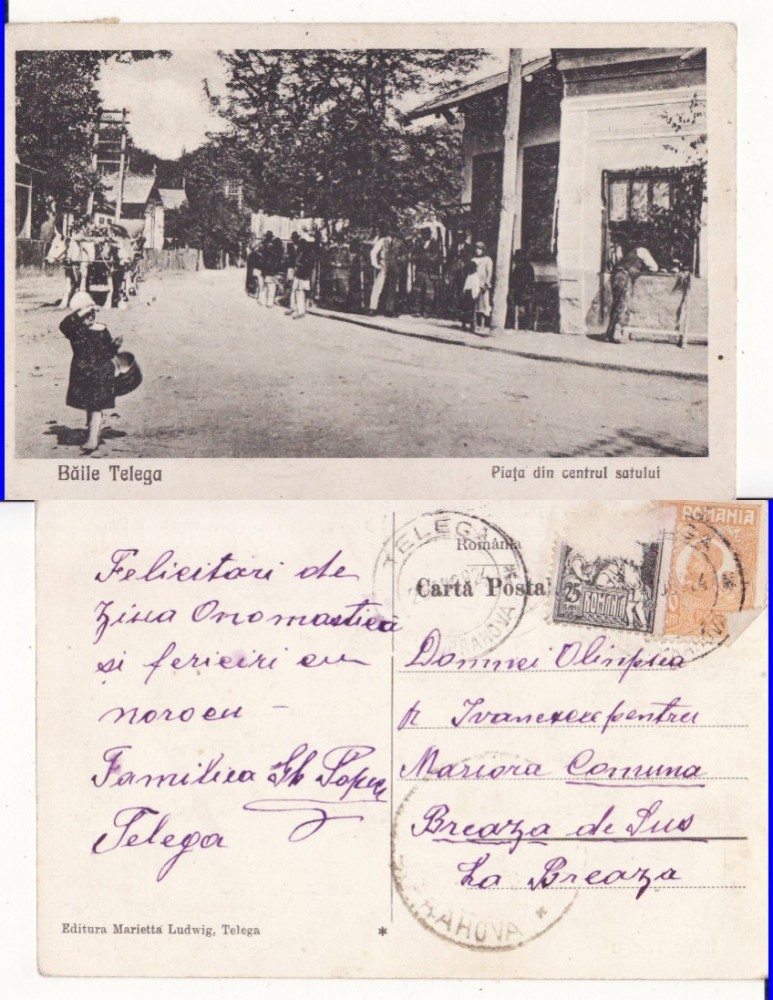 Băile Telega
Piața din centrul satului
TELEGA
PRAHOVA
România
Cartă Postal
25
ROMÂNIA
ROMANIA
PRAHOVA
Felicitari de
Ziua Onomastica
și fericiri cu
norocu –
Familiea Gh Popescu
Telega
Domnei Olimpiea
Ivanescu pentru
Mariora Comuna
Breaza de Sus
La Breaza
PRAHOVA *
Editura Marietta Ludwig, Telega
*